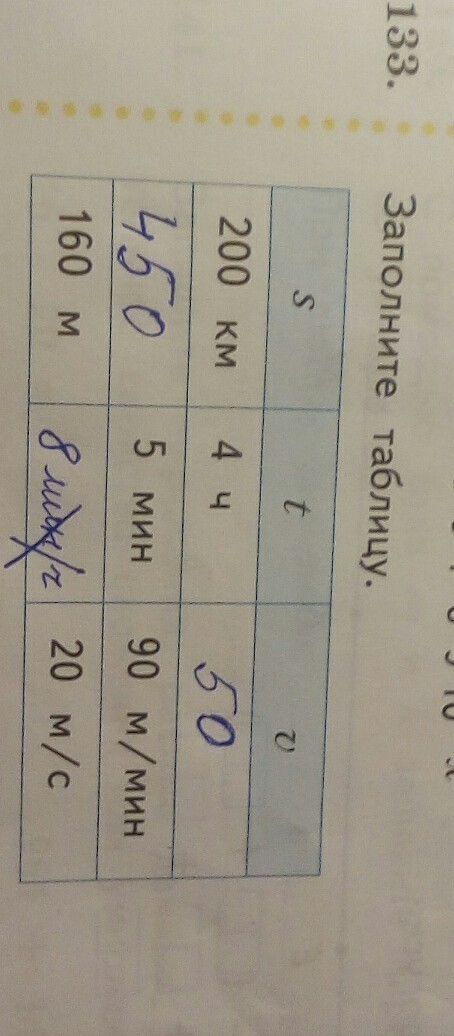 133. Заполните таблицу.
s t v
200 км 4 ч 50
450 5 мин 90 м/мин
160 м 8 20 м/с